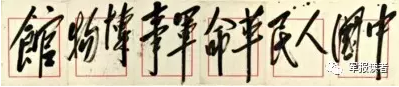 中國人民革命軍事博物館
军报读者